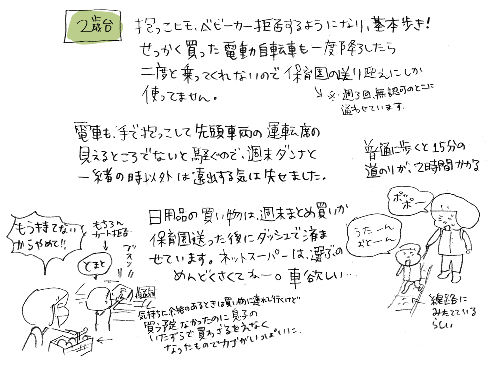 2歳台
抱っこヒモ、ベビーカー拒否するようになり、基本歩き!
せっかく買った電動自転車も一度降ろしたら
二度と乗ってくれないので保育園の送り迎えにしか
使ってません。
※週3回、無認可のとこに
通わせています。
電車も、手で抱っこして先頭車両の運転席の
見えるところでないと騒ぐので、週末ダンナと
一緒の時以外は遠出する気は失せました。
普通に歩くと15分の
道のりが、2時間かかる
日用品の買い物は、週末まとめ買いか
保育園送った後にダッシュで済ま
せています。ネットスーパーは、選ぶの
めんどくさくてねー。車欲しい…
もう持てない
からやめて!!
もちろん
カート拒否
とまと
ブオン!!
気持ちに余裕のあるときは買い物に連れて行くけど
買う予定なかったのに息子の
いたずらで買わざるをえなく
なったものでカゴがいっぱいに…
ポッポー
うたーん
おとーん
線路に
みたてている
らしい